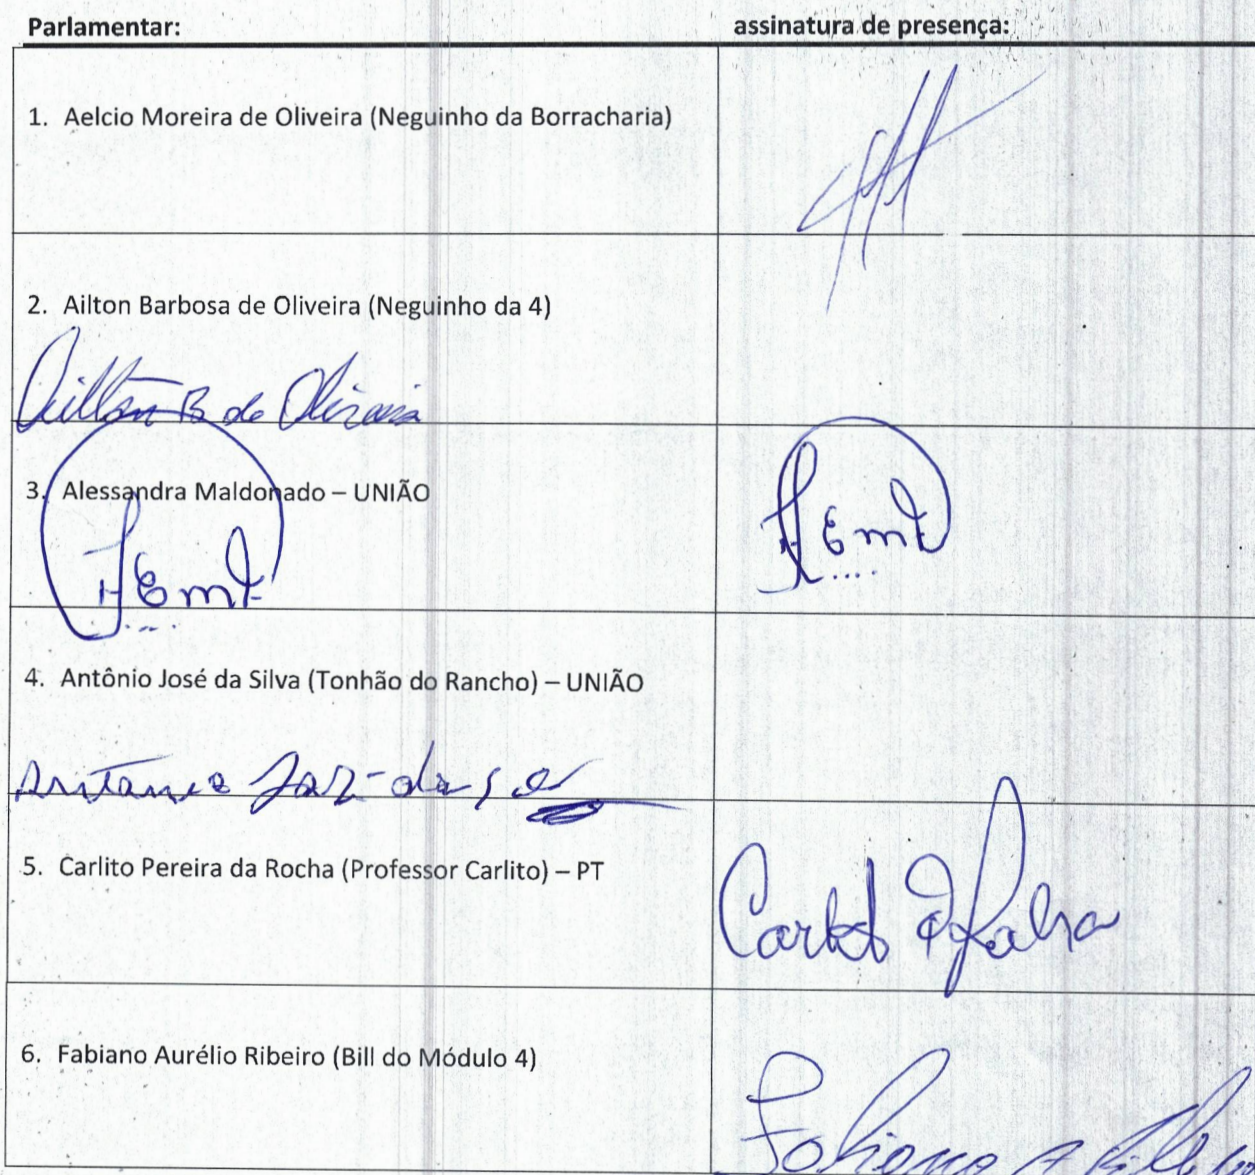 Parlamentar: assinatura de presença:
1. Aelcio Moreira de Oliveira (Neguinho da Borracharia)
2. Ailton Barbosa de Oliveira (Neguinho da 4)
Ailton B de Oliveira
3. Alessandra Maldonado – UNIÃO
4. Antônio José da Silva (Tonhão do Rancho) – UNIÃO
Antonio José da
5. Carlito Pereira da Rocha (Professor Carlito) – PT
6. Fabiano Aurélio Ribeiro (Bill do Módulo 4)
Fabiano A